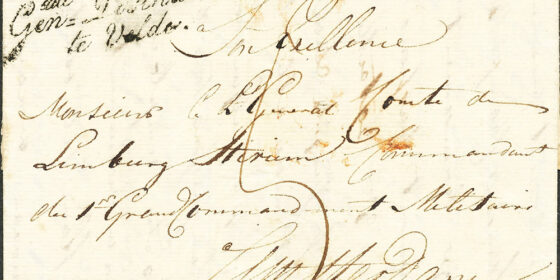 Gen=
te Velde.
a
Son Excellence
Monsieur le Lt General Comte de
Limburg Stirum Commandant
du 1er Grand Commandement Militaire